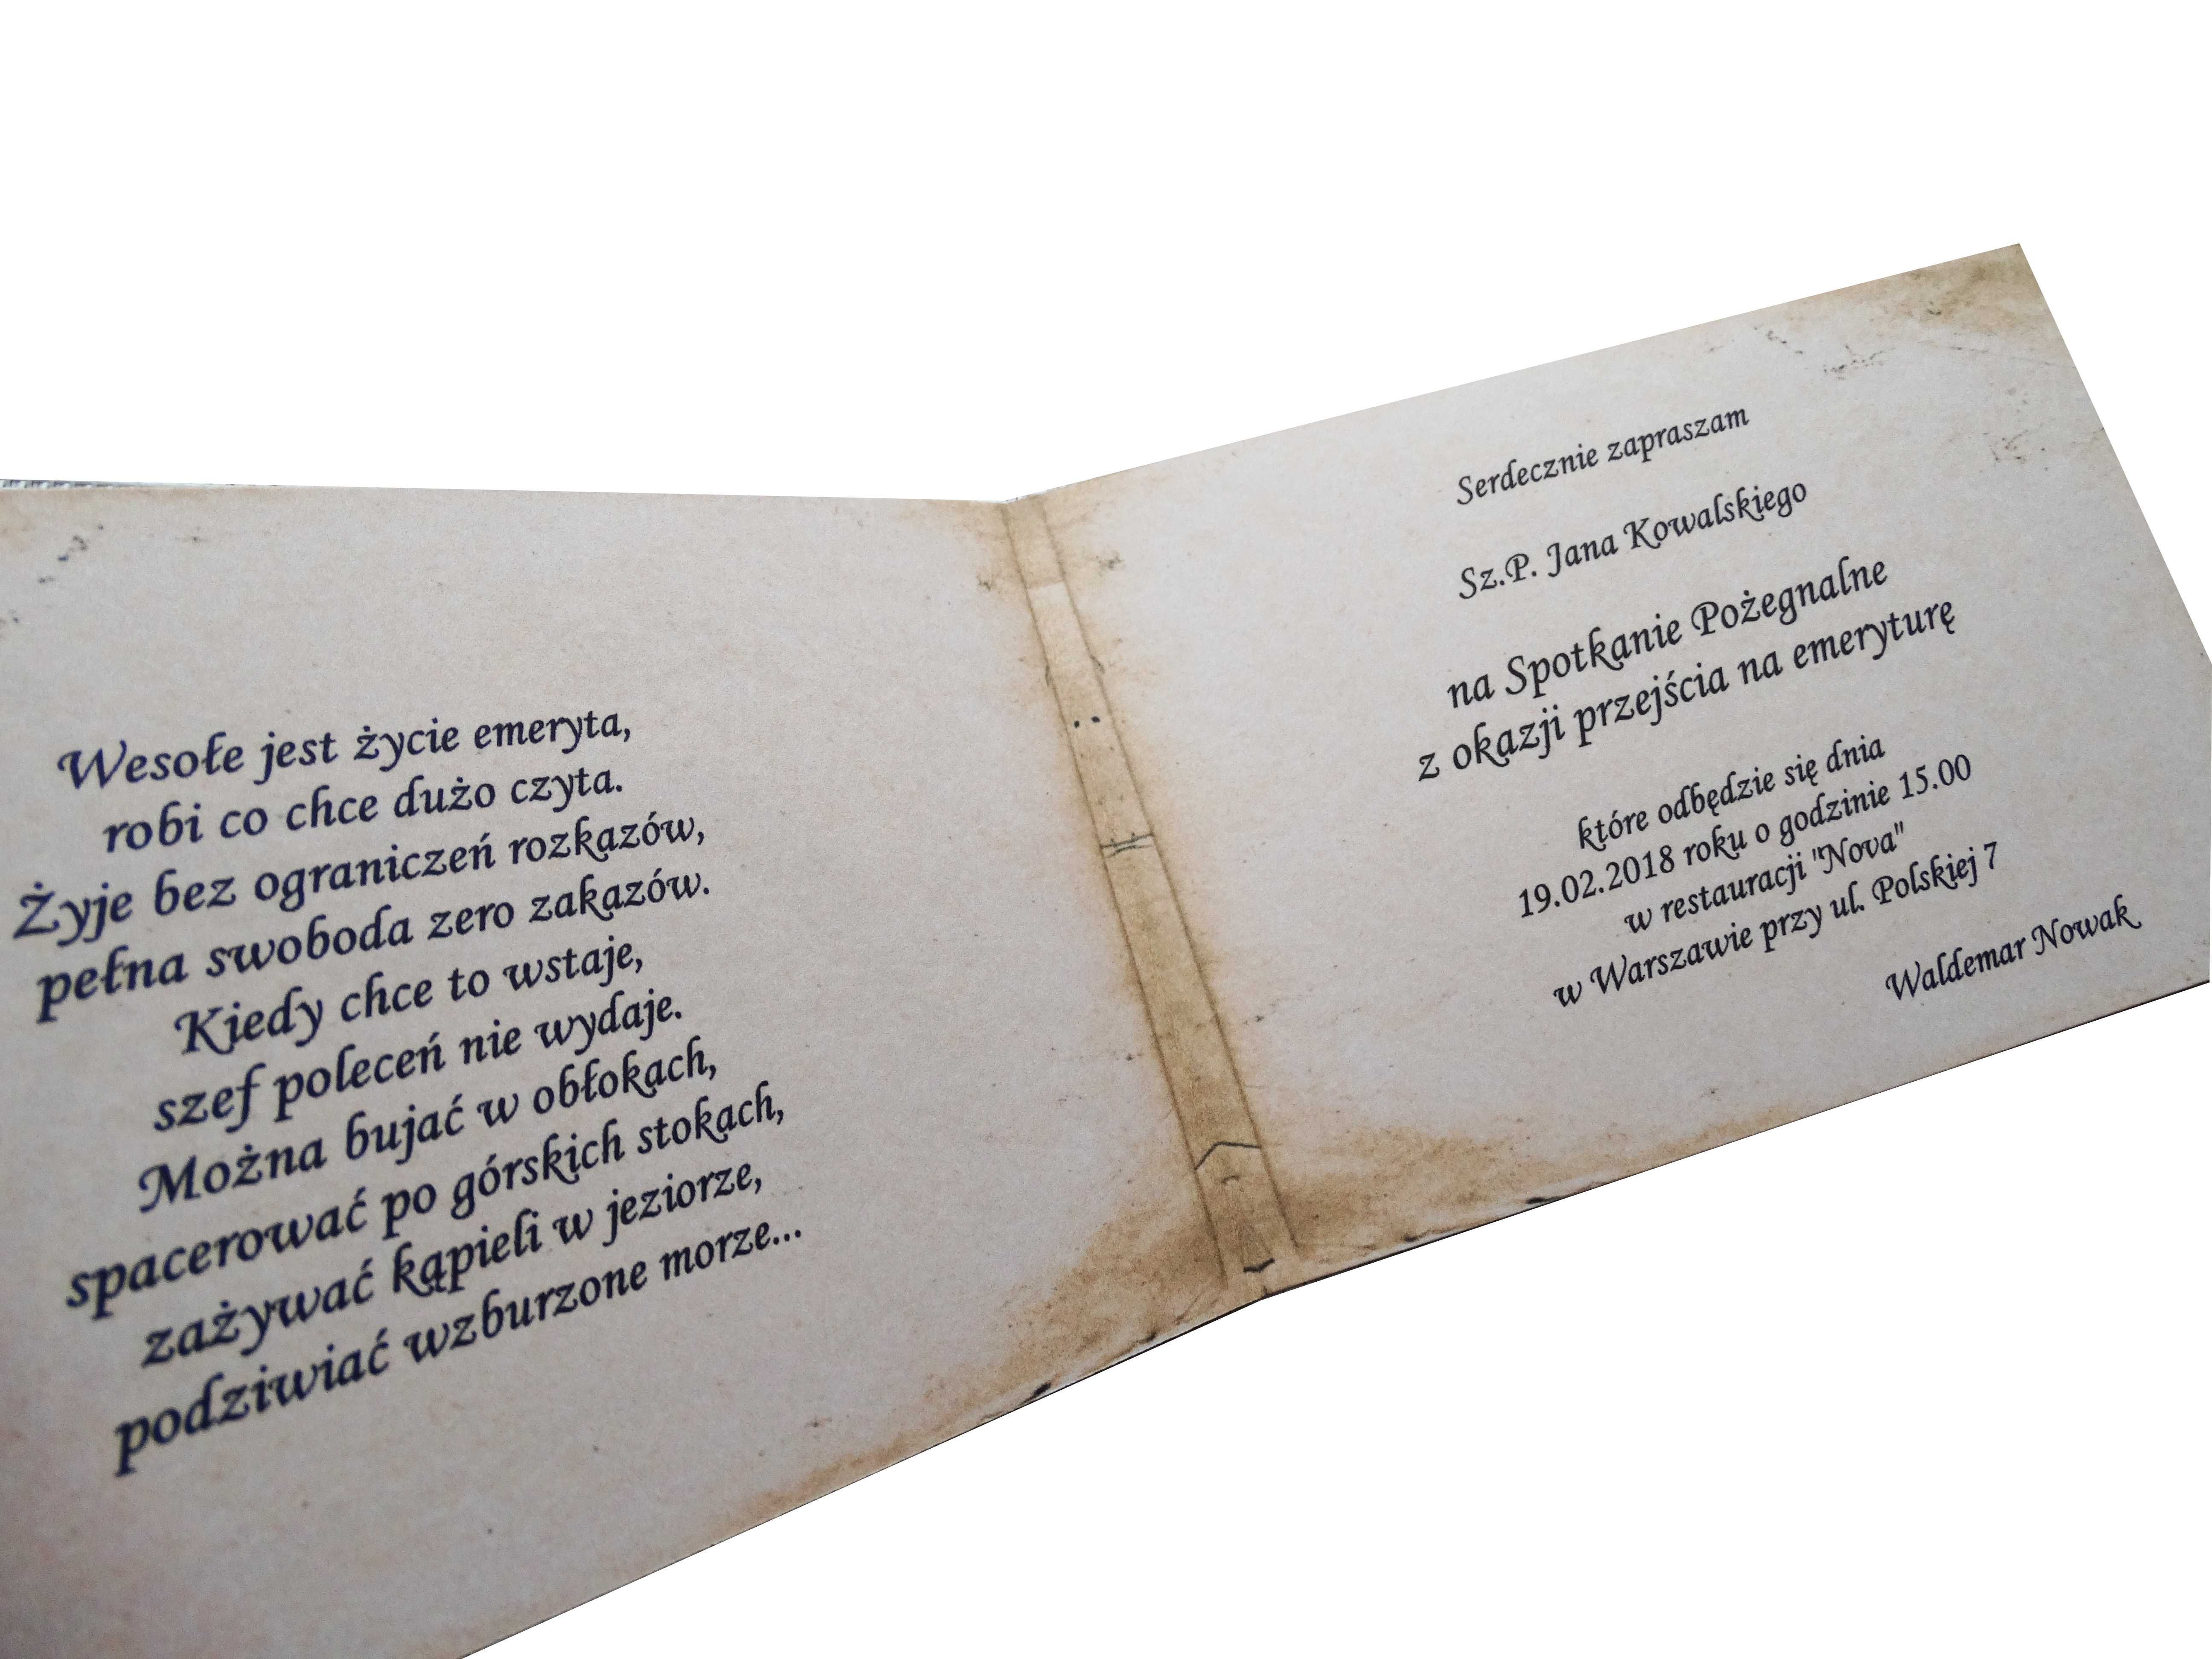 Wesołe jest życie emeryta,
robi co chce dużo czyta.
Żyje bez ograniczeń rozkazów,
pełna swoboda zero zakazów.
Kiedy chce to wstaje,
szef poleceń nie wydaje.
Można bujać w obłokach,
spacerować po górskich stokach,
zażywać kąpieli w jeziorze,
podziwiać wzburzone morze...
Serdecznie zapraszam
Sz.P. Jana Kowalskiego
na Spotkanie Pożegnalne
z okazji przejścia na emeryturę
które odbędzie się dnia
19.02.2018 roku o godzinie 15.00
w restauracji "Nova"
w Warszawie przy ul. Polskiej 7
Waldemar Nowak